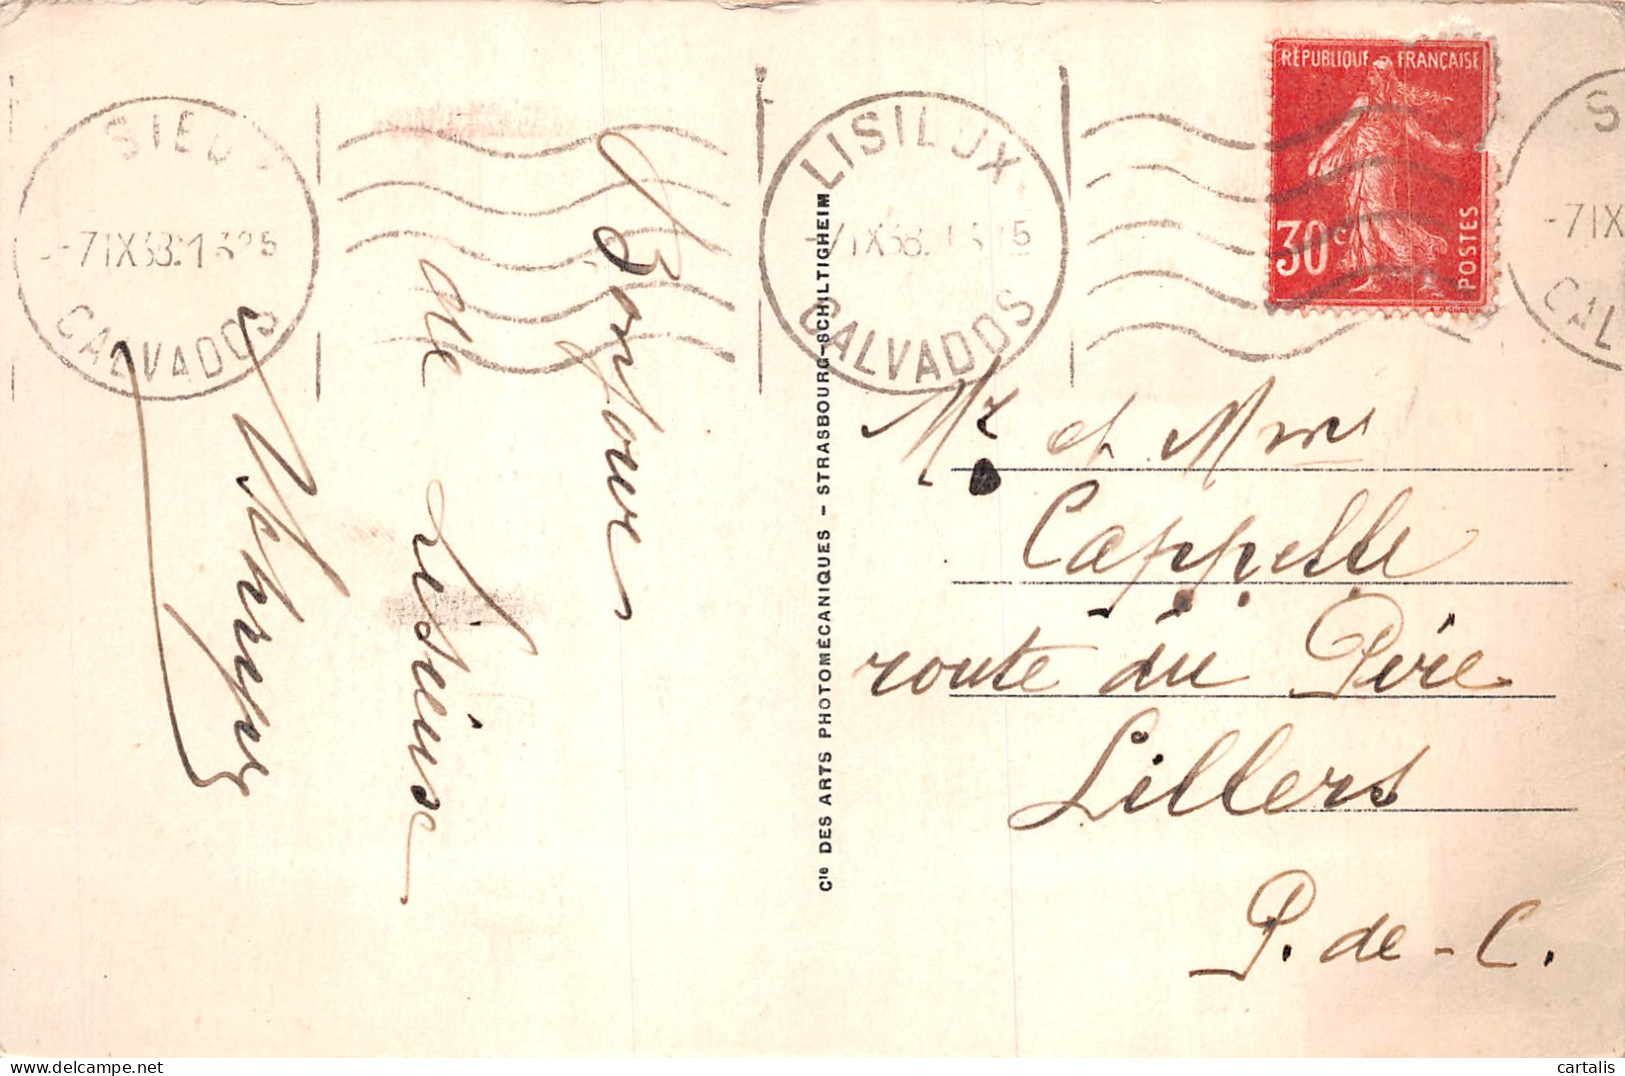 SIEUX
-7 IX 38. 1325
CALVADOS
LISIEUX
-7 IX 38. 1325
CALVADOS
RÉPUBLIQUE FRANÇAISE
30c
POSTES
-7 IX
CAL
Bonjour
de Lisieux
Cie DES ARTS PHOTOMÉCANIQUES - STRASBOURG-SCHILTIGHEIM
Mr et Mme
Cappelle
route du Pire
Lillers
P.-de-C.
cartalis